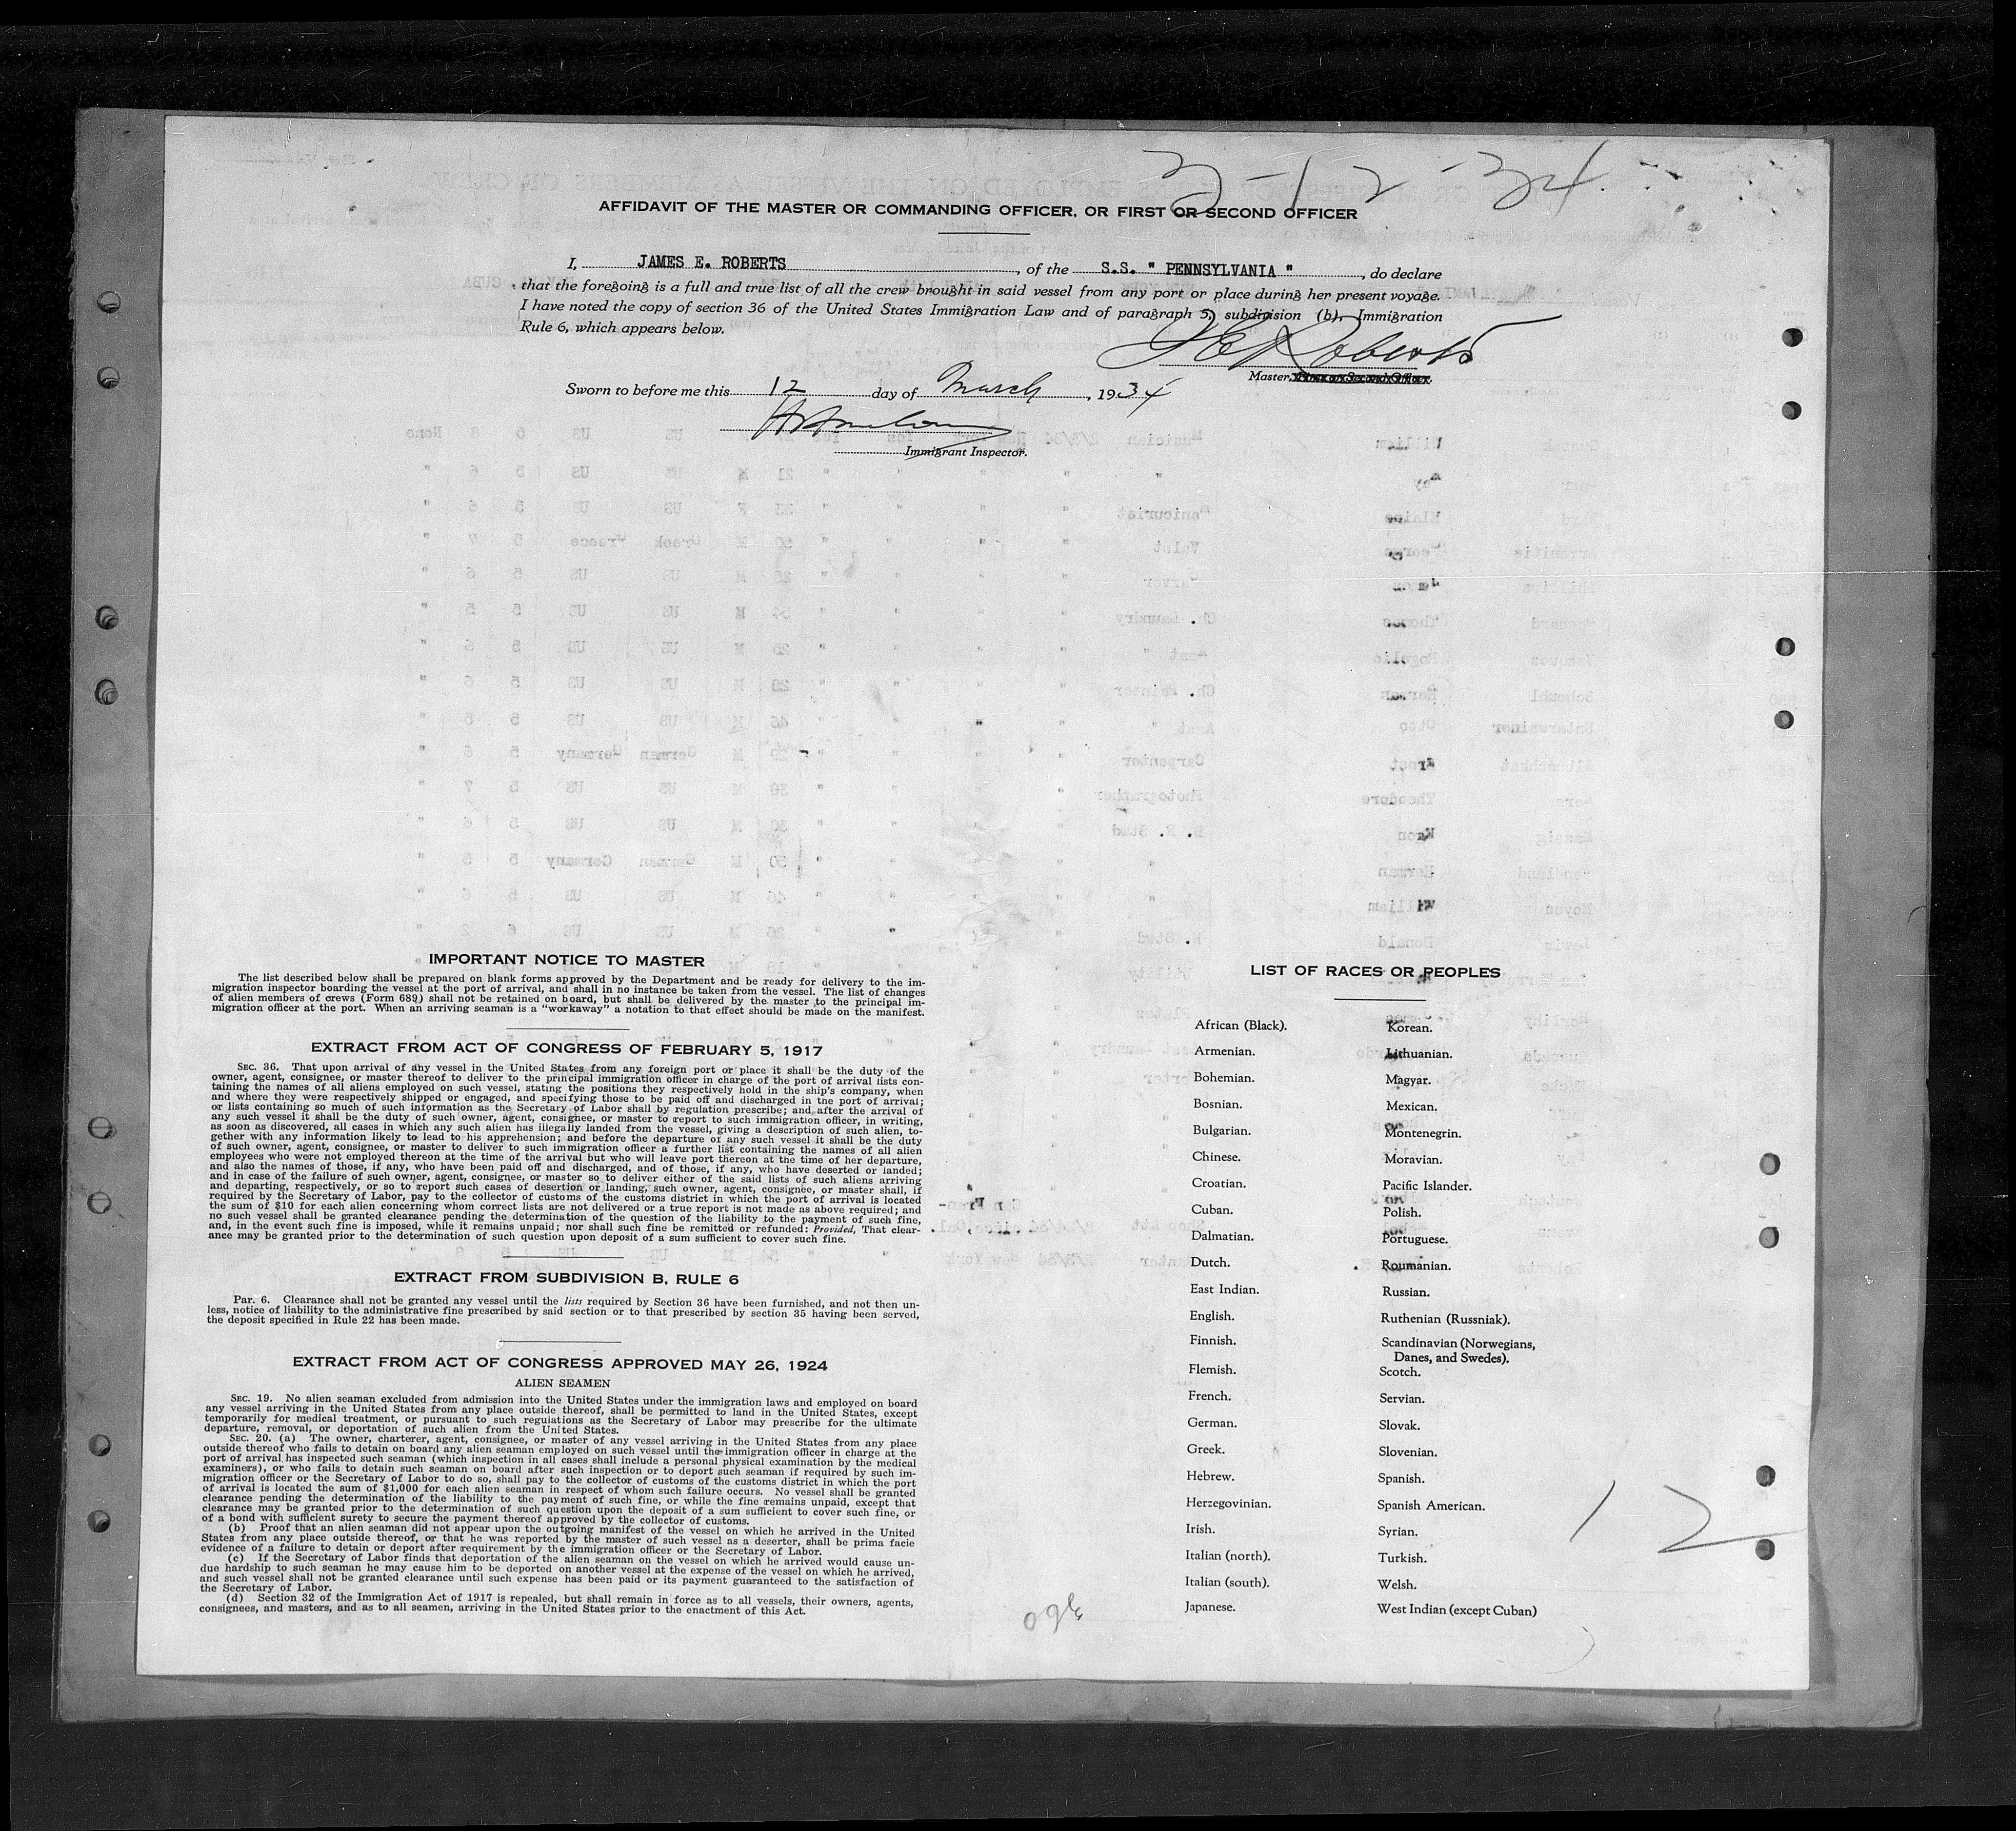 3-12-34.
AFFIDAVIT OF THE MASTER OR COMMANDING OFFICER, OR FIRST OR SECOND OFFICER
I, JAMES E. ROBERTS, of the S.S. " PENNSYLVANIA ", do declare
that the foregoing is a full and true list of all the crew brought in said vessel from any port or place during her present voyage.
I have noted the copy of section 36 of the United States Immigration Law and of paragraph 5, subdivision (b), Immigration
Rule 6, which appears below.
J E Roberts
Master, First or Second Officer.
Sworn to before me this 12 day of March, 1934
Immigrant Inspector.
IMPORTANT NOTICE TO MASTER
The list described below shall be prepared on blank forms approved by the Department and be ready for delivery to the im-
migration inspector boarding the vessel at the port of arrival, and shall in no instance be taken from the vessel. The list of changes
of alien members of crews (Form 689) shall not be retained on board, but shall be delivered by the master to the principal im-
migration officer at the port. When an arriving seaman is a "workaway" a notation to that effect should be made on the manifest.
EXTRACT FROM ACT OF CONGRESS OF FEBRUARY 5, 1917
SEC. 36. That upon arrival of any vessel in the United States from any foreign port or place it shall be the duty of the
owner, agent, consignee, or master thereof to deliver to the principal immigration officer in charge of the port of arrival lists con-
taining the names of all aliens employed on such vessel, stating the positions they respectively hold in the ship's company, when
and where they were respectively shipped or engaged, and specifying those to be paid off and discharged in the port of arrival;
or lists containing so much of such information as the Secretary of Labor shall by regulation prescribe; and after the arrival of
any such vessel it shall be the duty of such owner, agent, consignee, or master to report to such immigration officer, in writing,
as soon as discovered, all cases in which any such alien has illegally landed from the vessel, giving a description of such alien, to-
gether with any information likely to lead to his apprehension; and before the departure of any such vessel it shall be the duty
of such owner, agent, consignee, or master to deliver to such immigration officer a further list containing the names of all alien
employees who were not employed thereon at the time of the arrival but who will leave port thereon at the time of her departure,
and also the names of those, if any, who have been paid off and discharged, and of those, if any, who have deserted or landed;
and in case of the failure of such owner, agent, consignee, or master so to deliver either of the said lists of such aliens arriving
and departing, respectively, or so to report such cases of desertion or landing, such owner, agent, consignee, or master shall, if
required by the Secretary of Labor, pay to the collector of customs of the customs district in which the port of arrival is located
the sum of $10 for each alien concerning whom correct lists are not delivered or a true report is not made as above required; and
no such vessel shall be granted clearance pending the determination of the question of the liability to the payment of such fine,
and, in the event such fine is imposed, while it remains unpaid; nor shall such fine be remitted or refunded: Provided, That clear-
ance may be granted prior to the determination of such question upon deposit of a sum sufficient to cover such fine.
EXTRACT FROM SUBDIVISION B, RULE 6
Par. 6. Clearance shall not be granted any vessel until the lists required by Section 36 have been furnished, and not then un-
less, notice of liability to the administrative fine prescribed by said section or to that prescribed by section 35 having been served,
the deposit specified in Rule 22 has been made.
EXTRACT FROM ACT OF CONGRESS APPROVED MAY 26, 1924
ALIEN SEAMEN
SEC. 19. No alien seaman excluded from admission into the United States under the immigration laws and employed on board
any vessel arriving in the United States from any place outside thereof, shall be permitted to land in the United States, except
temporarily for medical treatment, or pursuant to such regulations as the Secretary of Labor may prescribe for the ultimate
departure, removal, or deportation of such alien from the United States.
SEC. 20. (a) The owner, charterer, agent, consignee, or master of any vessel arriving in the United States from any place
outside thereof who fails to detain on board any alien seaman employed on such vessel until the immigration officer in charge at the
port of arrival has inspected such seaman (which inspection in all cases shall include a personal physical examination by the medical
examiners), or who fails to detain such seaman on board after such inspection or to deport such seaman if required by such im-
migration officer or the Secretary of Labor to do so, shall pay to the collector of customs of the customs district in which the port
of arrival is located the sum of $1,000 for each alien seaman in respect of whom such failure occurs. No vessel shall be granted
clearance pending the determination of the liability to the payment of such fine, or while the fine remains unpaid, except that
clearance may be granted prior to the determination of such question upon the deposit of a sum sufficient to cover such fine, or
of a bond with sufficient surety to secure the payment thereof approved by the collector of customs.
(b) Proof that an alien seaman did not appear upon the outgoing manifest of the vessel on which he arrived in the United
States from any place outside thereof, or that he was reported by the master of such vessel as a deserter, shall be prima facie
evidence of a failure to detain or deport after requirement by the immigration officer or the Secretary of Labor.
(c) If the Secretary of Labor finds that deportation of the alien seaman on the vessel on which he arrived would cause un-
due hardship to such seaman he may cause him to be deported on another vessel at the expense of the vessel on which he arrived,
and such vessel shall not be granted clearance until such expense has been paid or its payment guaranteed to the satisfaction of
the Secretary of Labor.
(d) Section 32 of the Immigration Act of 1917 is repealed, but shall remain in force as to all vessels, their owners, agents,
consignees, and masters, and as to all seamen, arriving in the United States prior to the enactment of this Act.
LIST OF RACES OR PEOPLES
African (Black).
Armenian.
Bohemian.
Bosnian.
Bulgarian.
Chinese.
Croatian.
Cuban.
Dalmatian.
Dutch.
East Indian.
English.
Finnish.
Flemish.
French.
German.
Greek.
Hebrew.
Herzegovinian.
Irish.
Italian (north).
Italian (south).
Japanese.
Korean.
Lithuanian.
Magyar.
Mexican.
Montenegrin.
Moravian.
Pacific Islander.
Polish.
Portuguese.
Roumanian.
Russian.
Ruthenian (Russniak).
Scandinavian (Norwegians,
Danes, and Swedes).
Scotch.
Servian.
Slovak.
Slovenian.
Spanish.
Spanish American.
Syrian.
Turkish.
Welsh.
West Indian (except Cuban)
12